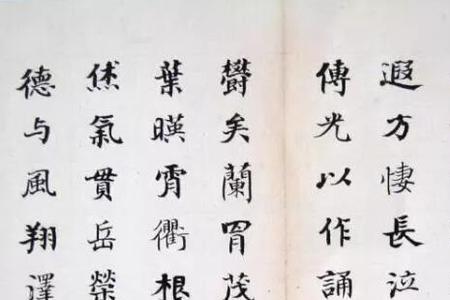 遐方悽長泣
傳光以作誦
欝矣蘭冑茂
葉暎霄衢根
烋氣貫岳榮
德与風翔澤